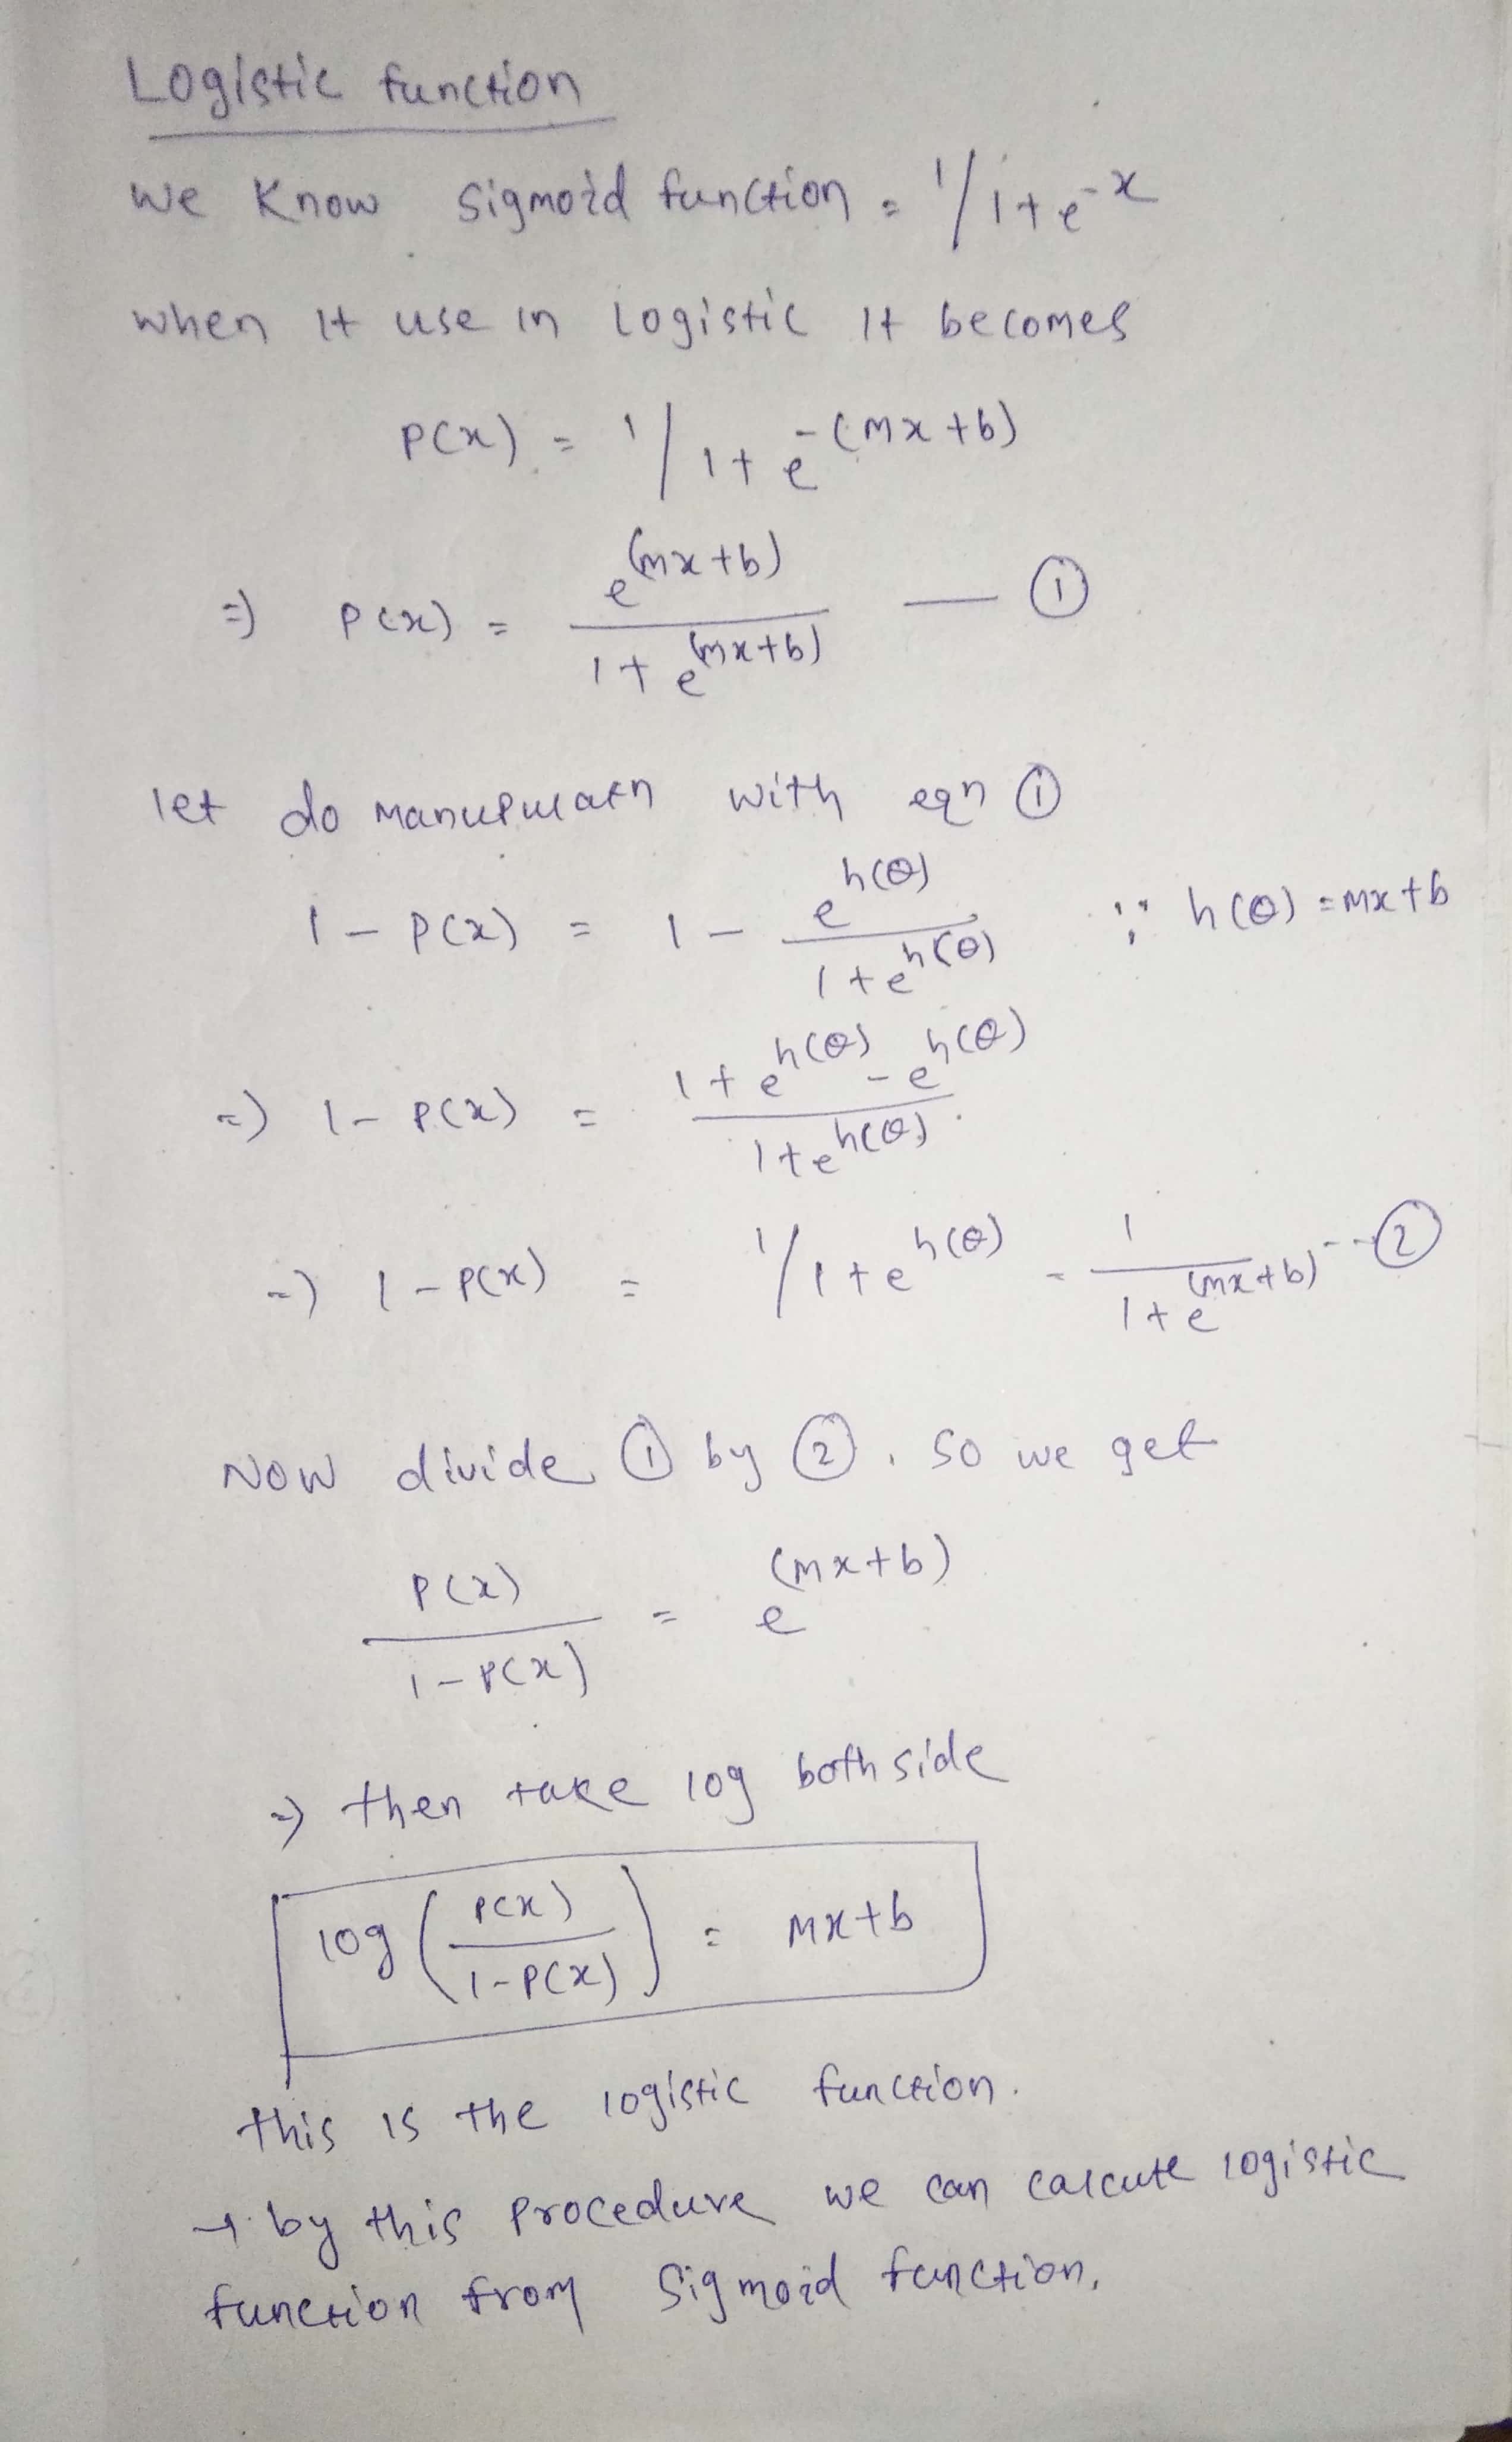 Logistic function
we know sigmoid function = 1/1+e^-x
when it use in logistic it becomes
P(x) = 1/1+e^-(mx+b)
=) P(x) = e^(mx+b) / 1+e^(mx+b) — ①
let do with eqn ①
1 - P(x) = 1 - e^h(θ) / 1+e^h(θ) ∵ h(θ) = mx+b
=) 1 - P(x) = 1+e^h(θ) - e^h(θ) / 1+e^h(θ)
=) 1 - P(x) = 1/1+e^h(θ) = 1 / 1+e^(mx+b) --- ②
NOW divide ① by ②. so we get
P(x) / 1-P(x) = e^(mx+b)
=) then take log both side
log ( P(x) / 1-P(x) ) = mx+b
this is the logistic function.
→ by this procedure we can calcute logistic
function from sigmoid function.